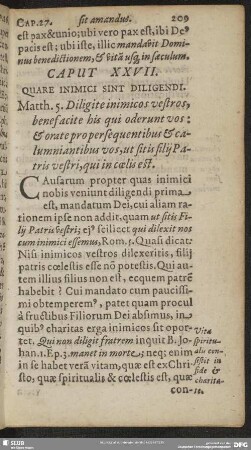 CAP. 27. sit amandus. 209
est pax & unio; ubi vero pax est, ibi De⁹
pacis est; ubi iste, illic mandavit Domi-
nus benedictionem, & vitā usq; in sæculum.
CAPUT XXVII.
QUARE INIMICI SINT DILIGENDI.
Matth. 5. Diligite inimicos vestros,
benefacite his qui oderunt vos:
& orate pro persequentibus & ca-
lumniantibus vos, ut sitis filij Pa-
tris vestri, qui in cœlis est.
CAusarum propter quas inimici
nobis veniunt diligendi prima
est, mandatum Dei, cui aliam ra-
rationem ipse non addit, quam ut sitis Fi-
lij Patris vestri; ej⁹ scilicet qui dilexit nos
cum inimici essemus, Rom. 5. Quasi dicat:
Nisi inimicos vestros dilexeritis, filij
patris cœlestis esse nō potestis. Qui au-
tem illius filius non est, ecquem patrē
habebit? Cui mandato cum paucissi-
mi obtemperem⁹, patet quam procul
â fructibus Filiorum Dei absimus, in
quib⁹ charitas erga inimicos sit opor-
tet. Qui non diligit fratrem inquit B. Jo-
han. 1. Ep. 3. manet in morte; neq; enim
in se habet verā vitam, quæ est ex Chri-
sto, quæ spiritualis & cœlestis est, quæ
con-
Vita
spiritu-
alis con-
sistit in
fide &
charita-
te.
SLUB